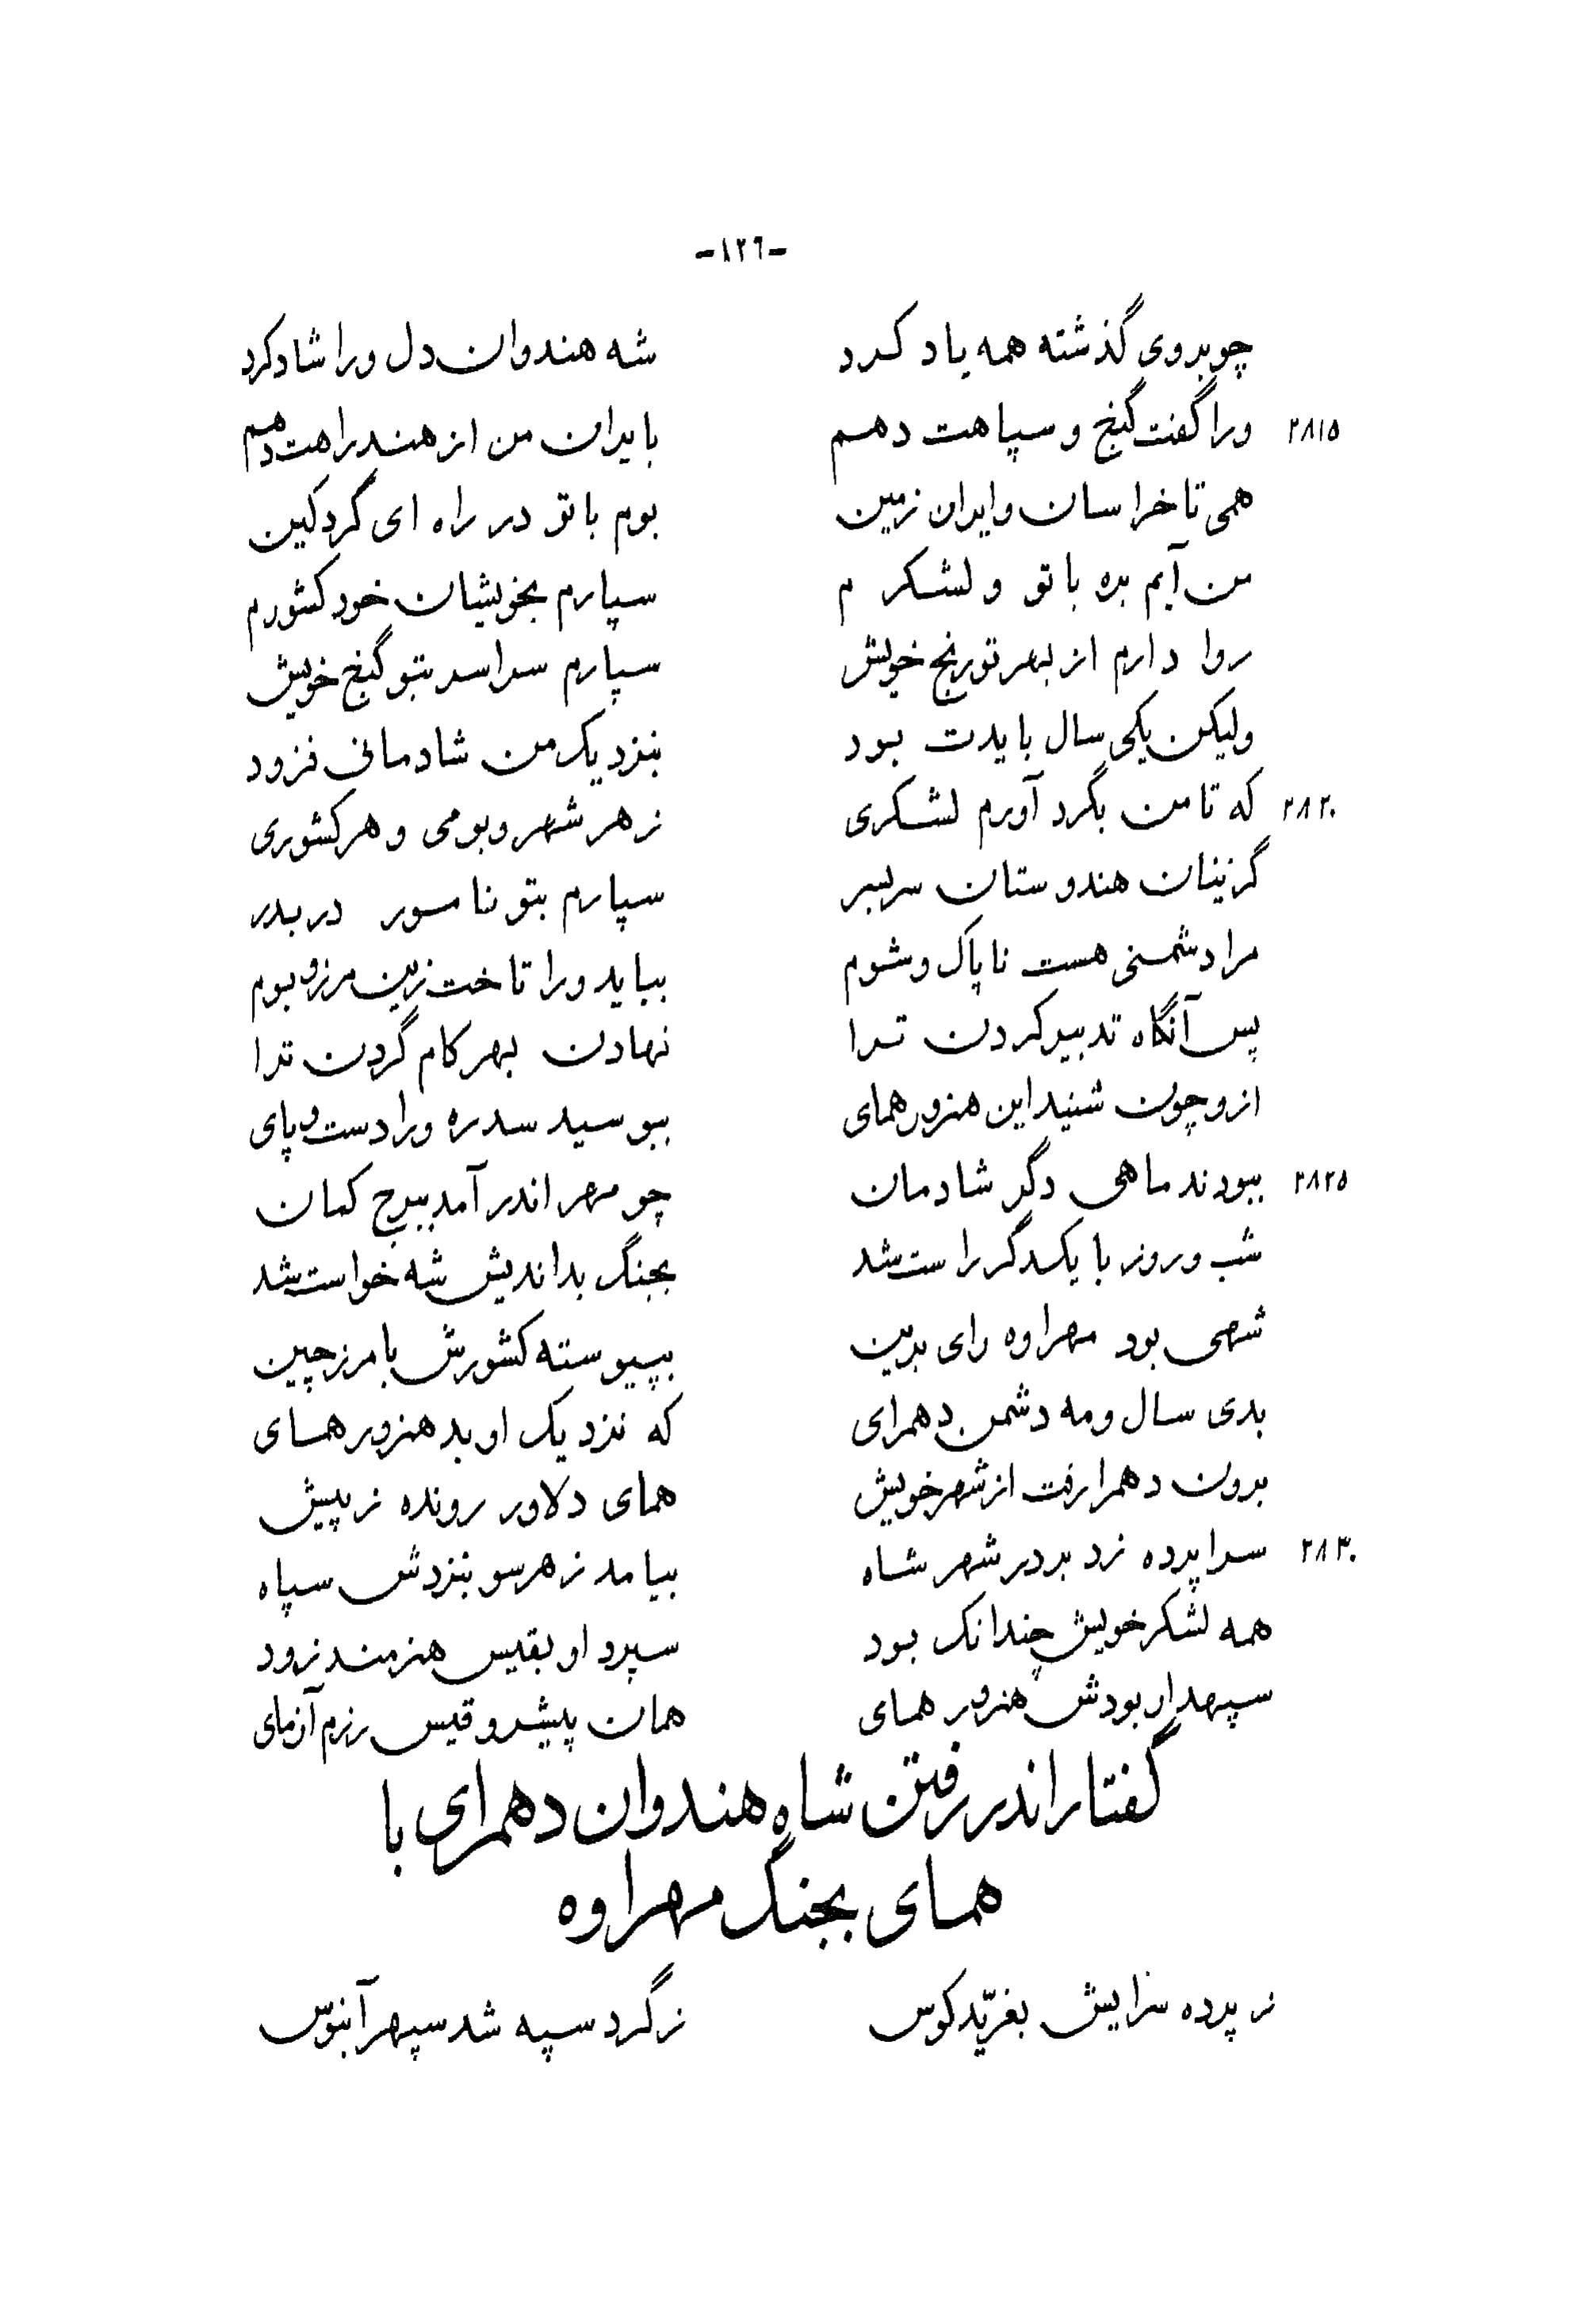 -١٢٦-
چو بروی گذشته همه یاد کرد شه هندوان دل ورا شاد کرد
٢٨١٥ ورا گفت گنج و سپاهت دهم بایران من از هند راهت دهم
همی تا خراسان و ایران زمین بوم با تو در راه ای گرد کین
من آیم بره با تو و لشکرم سپارم بخویشان خود کشورم
روا دارم از بهر تو رنج خویش سپارم سراسر بتو گنج خویش
ولیکن یکی سال بایدت بود بنزدیک من شادمانی فزود
٢٨٢٠ که تا من بگرد آورم لشکری ز هر شهر و بومی و هر کشوری
گزینان هندوستان سربسر سپارم بتو نامور دربدر
مرا دشمنی هست ناپاک و شوم بباید ورا تاخت زین مرز و بوم
پس آنگاه تدبیر کردن ترا نهادن بهر کام گردن ترا
ازو چون شنید این هنرور همای ببوسید سدره ورا دست و پای
٢٨٢٥ ببودند ماهی دگر شادمان چو مهر اندر آمد ببرج کمان
شب و روز با یکدگر راست شد بجنگ بداندیش شه خواست شد
شهی بود مهراوه رای برین بپیوسته کشورش با مرز چین
بدی سال و مه دشمن دهمرای که نزدیک او بد هنرور همای
برون دهمرا رفت از شهر خویش همای دلاور رونده ز پیش
٢٨٣٠ سراپرده زد بر در شهر شاه بیامد ز هر سو بنزدش سپاه
همه لشکر خویش چندانک بود سپرد او بقیس هنرمند زود
سپهدار بودش هنرور همای همان پیشرو قیس رزم آزمای
گفتار اندر رفتن شاه هندوان دهمرای با
همای بجنگ مهراوه
ز پرده سرایش بغرّید کوس ز گرد سپه شد سپهر آبنوس